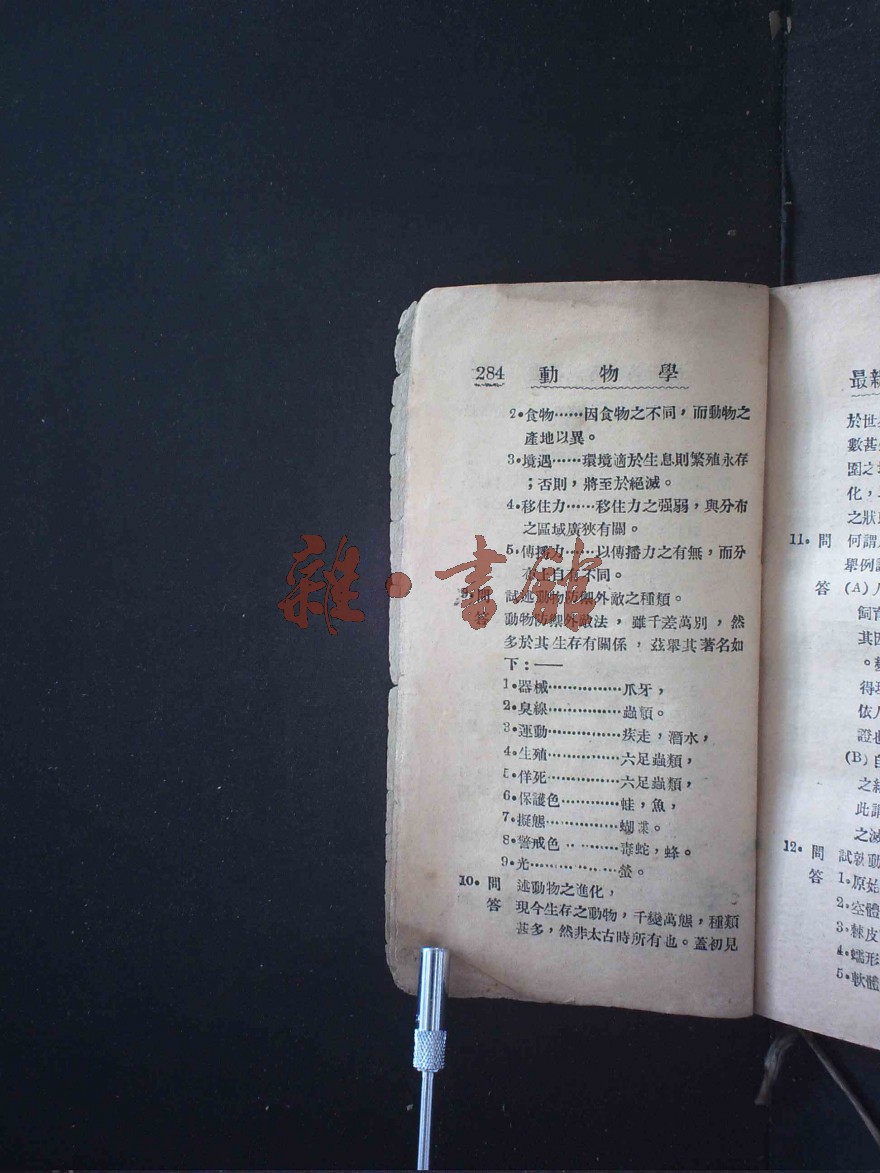 284 動物學
2.食物……因食物之不同，而動物之
產地以異。
3.境遇……環境適於生息則繁殖永存
；否則，將至於絕滅。
4.移住力……移住力之强弱，與分布
之區域廣狹有關。
5.傳播力……以傳播力之有無，而分
布上自有不同。
9.問 試述動物防禦外敵之種類。
答 動物防禦外敵法，雖千差萬別，然
多於其生存有關係，茲舉其著名如
下：——
1.器械……………爪牙，
2.臭線……………蟲類。
3.運動……………疾走，潛水，
4.生殖……………六足蟲類，
5.佯死……………六足蟲類，
6.保護色…………蛙，魚，
7.擬態……………蝴蝶。
8.警戒色…………毒蛇，蜂。
9.光………………螢。
10.問 述動物之進化，
答 現今生存之動物，千變萬態，種類
甚多，然非太古時所有也。蓋初見
最新
於世
數甚
圍之
化，
之狀
11.問 何謂
舉例
答 (A)
飼育
其因
。
得
依
證也
(B)自
之
此謂
之滅
12.問 試 動
答 1.原始
2.空體
3.棘皮
4.蠕形
5.軟體
雜·書館